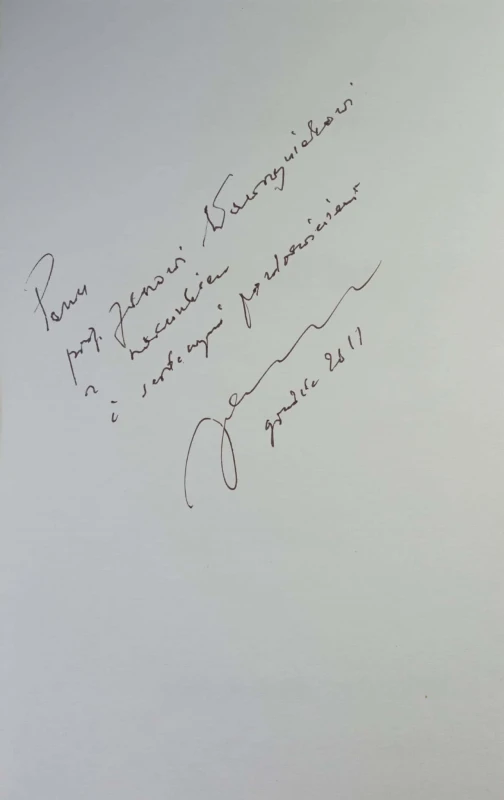 Panu
prof. Janowi Wawrzyniakowi
z szacunkiem
i serdecznymi pozdrowieniami
grudzień 2011